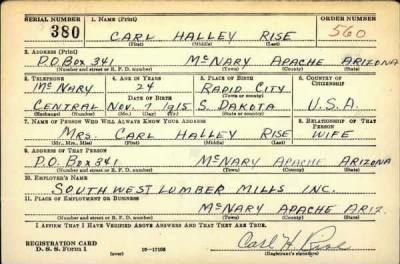 SERIAL NUMBER 1. NAME (Print) ORDER NUMBER
380 CARL HALLEY RISE 560
(First) (Middle) (Last)
2. ADDRESS (Print)
P.O. Box 341 McNARY APACHE ARIZONA
(Number and street or R. F. D. number) (Town) (County) (State)
3. TELEPHONE 4. AGE IN YEARS 5. PLACE OF BIRTH 6. COUNTRY OF CITIZENSHIP
McNARY 24 RAPID CITY
DATE OF BIRTH (Town or county)
CENTRAL Nov. 7 1915 S. DAKOTA U.S.A.
(Exchange) (Number) (Mo.) (Day) (Yr.) (State or country)
7. NAME OF PERSON WHO WILL ALWAYS KNOW YOUR ADDRESS 8. RELATIONSHIP OF THAT PERSON
MRS. CARL HALLEY RISE WIFE
(Mr., Mrs., Miss) (First) (Middle) (Last)
9. ADDRESS OF THAT PERSON
P.O. Box 341 McNARY APACHE ARIZONA
(Number and street or R. F. D. number) (Town) (County) (State)
10. EMPLOYER'S NAME
SOUTHWEST LUMBER MILLS INC.
11. PLACE OF EMPLOYMENT OR BUSINESS
McNARY APACHE ARIZ.
(Number and street or R. F. D. number) (Town) (County) (State)
I AFFIRM THAT I HAVE VERIFIED ABOVE ANSWERS AND THAT THEY ARE TRUE.
REGISTRATION CARD
D. S. S. Form 1 (over) 16—17105 Carl H. Rise
(Registrant's signature)